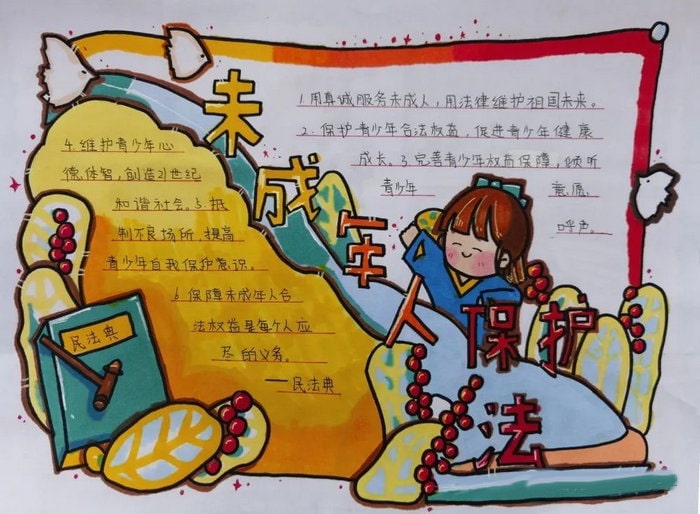 未成年人保护法
1.用真诚服务未成人，用法律维护祖国未来。
2.保护青少年合法权益，促进青少年健康
成长。3.完善青少年权益保障，倾听
青少年 意愿、
呼声。
4.维护青少年心
德、体智，创造21世纪
和谐社会。5.抵
制不良场所，提高
青少年自我保护意识。
6.保障未成年人合
法权益是每个人应
尽的义务。
——民法典
民法典